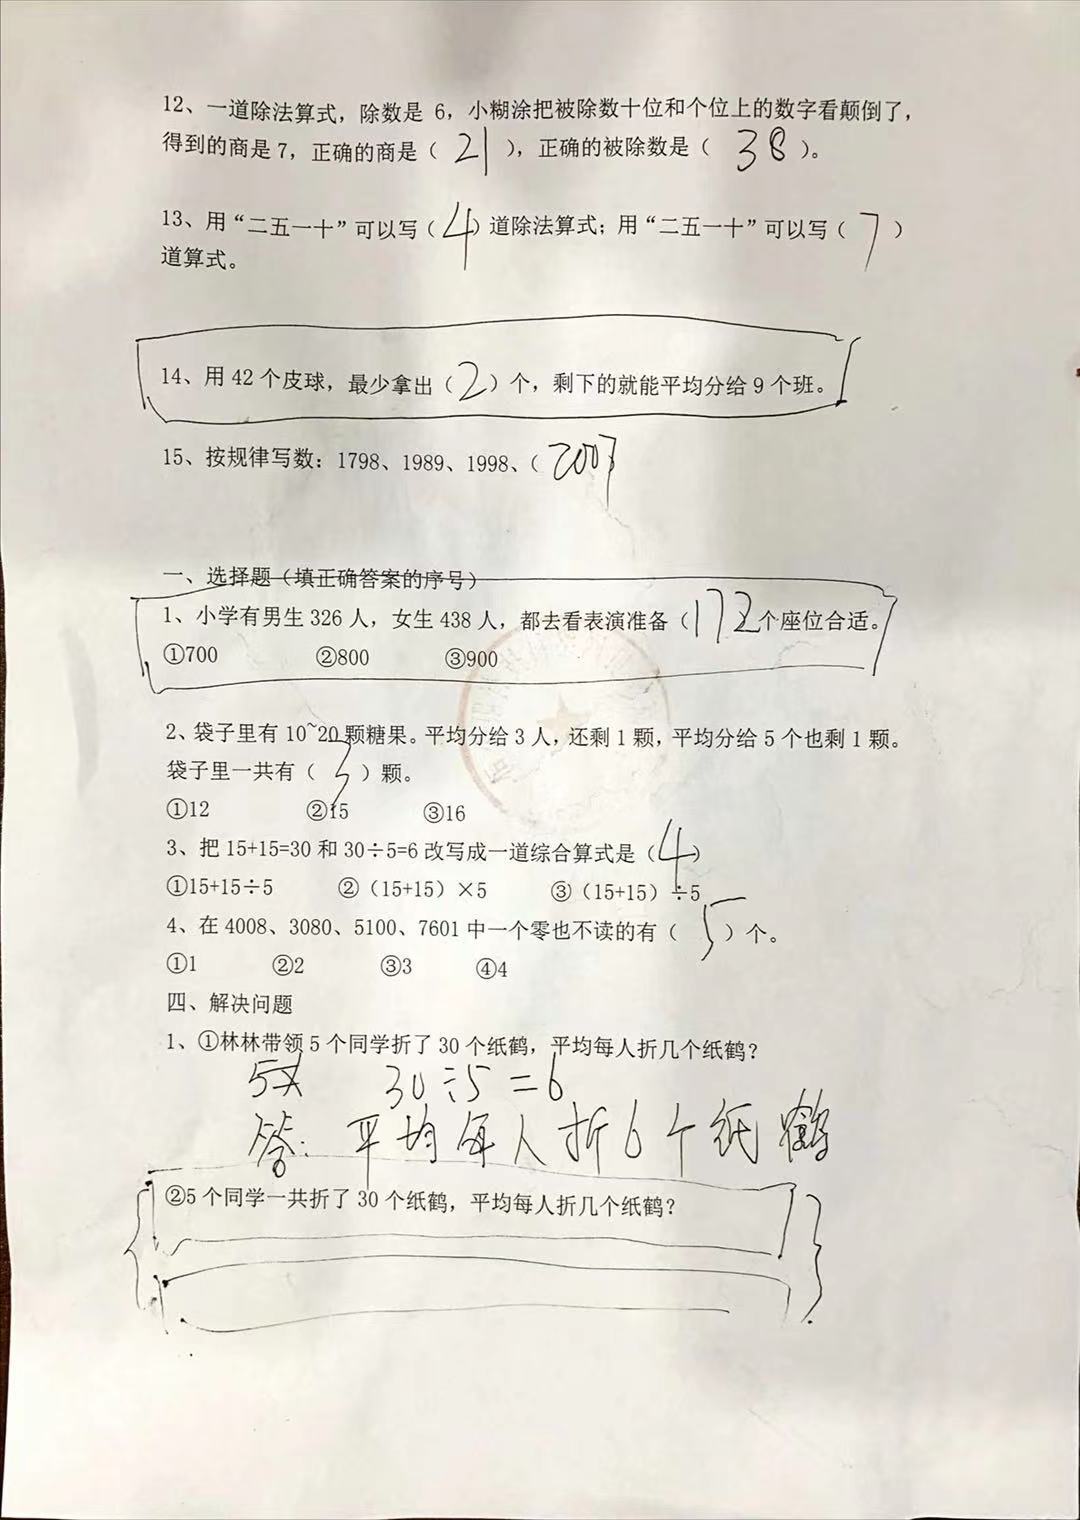 12、一道除法算式，除数是 6，小糊涂把被除数十位和个位上的数字看颠倒了，
得到的商是 7，正确的商是（ 21 ），正确的被除数是（ 38 ）。
13、用“二五一十”可以写（ 4 ）道除法算式；用“二五一十”可以写（ 7 ）
道算式。
14、用 42 个皮球，最少拿出（ 2 ）个，剩下的就能平均分给 9 个班。
15、按规律写数：1798、1989、1998、（ 2007
一、选择题（填正确答案的序号）
1、小学有男生 326 人，女生 438 人，都去看表演准备（ 172 个座位合适。
①700 ②800 ③900
2、袋子里有 10~20 颗糖果。平均分给 3 人，还剩 1 颗，平均分给 5 个也剩 1 颗。
袋子里一共有（ 3 ）颗。
①12 ②15 ③16
3、把 15+15=30 和 30÷5=6 改写成一道综合算式是（ 4 ）
①15+15÷5 ②（15+15）×5 ③（15+15）÷5
4、在 4008、3080、5100、7601 中一个零也不读的有（ 5 ）个。
①1 ②2 ③3 ④4
四、解决问题
1、①林林带领 5 个同学折了 30 个纸鹤，平均每人折几个纸鹤？
30÷5=6
答：平均每人折6个纸鹤
②5 个同学一共折了 30 个纸鹤，平均每人折几个纸鹤？